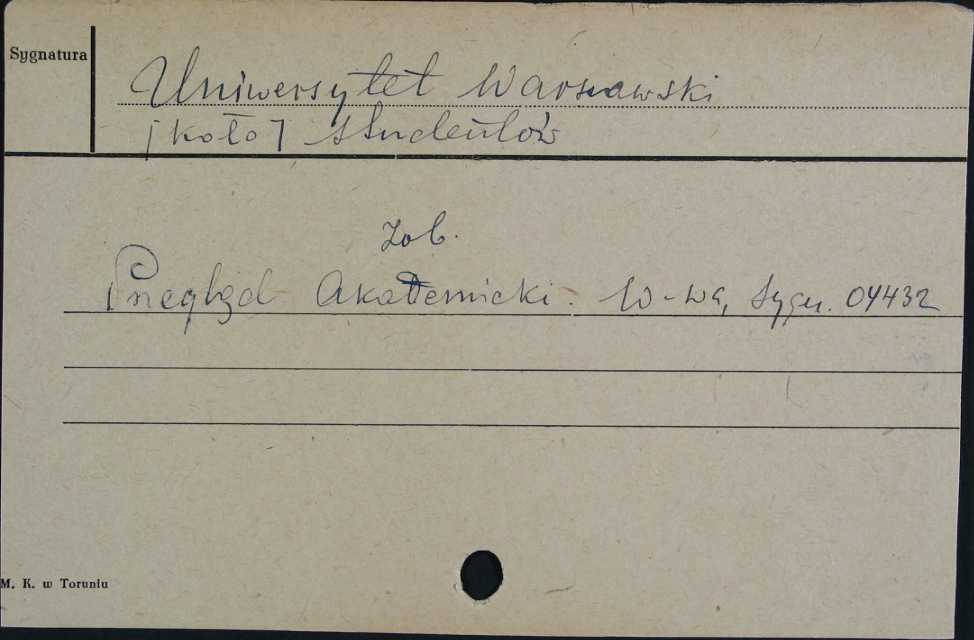 Sygnatura
Uniwersytet Warszawski
[koło] studentów
Zob.
Przegląd Akademicki. W-wa, Sygn. 04432
M. K. w Toruniu